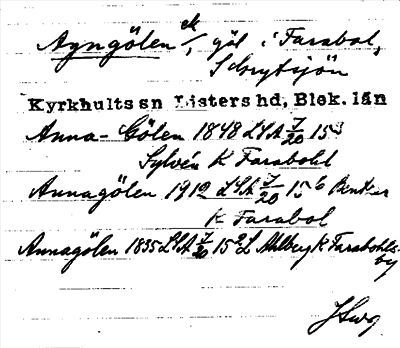 Agngölen ek/, göl i Farabol,
S Grytsjön
Kyrkhults sn Listers hd, Blek. län
Anna-Gölen 1848 LSA 7/20 15
Sylvén K Farabohl
Annagölen 1910 LSA 7/20 15
K Farabol
Annagölen 1835 LSA 7/20 15 L Ahlberg K Farabohls-
by